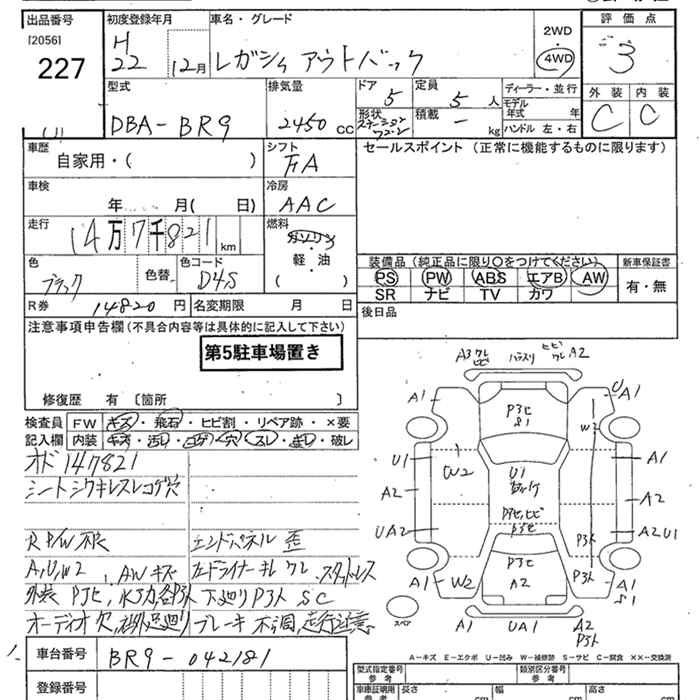 出品番号
[2056]
227
初度登録年月
H 22 12月
車名・グレード
レガシィ アウトバック
2WD
4WD
評価点
3
外装 内装
C C
型式
DBA-BR9
排気量
2450 CC
ドア
5
定員
5 人
形状
ステーションワゴン
積載
- kg
ディーラー・並行
モデル年式 年
ハンドル 左・右
車歴
自家用・( )
シフト
FA
車検
年 月( 日)
冷房
AAC
走行
14万7千821km
燃料
ガソリン
軽・油
( )
色
ブラック
色替
色コード
D4S
R券 14820 円
名変期限 月 日
セールスポイント (正常に機能するものに限ります)
装備品 (純正品に限り○をつけてください)
PS PW ABS エアB AW
SR ナビ TV カワ
新車保証書
有・無
後日品
注意事項申告欄(不具合内容等は具体的に記入して下さい)
第5駐車場置き
修復歴 有 〔箇所 〕
検査員記入欄
FW キズ・飛石・ヒビ割・リペア跡・×要
内装 キズ・汚れ・コゲ・穴・スレ・破レ
オド 147821
シートシワキレスレコゲ穴
R P/W不良
エンドパネル 歪
A,U,W2 , AWキズ
スタットレス
外装 PJヒ,
下廻りPヌケ SC
オーディオ欠,
ブレーキ不調, 走行注意
A3 ワレ ヒビ
バネスリ
ヒビ ワレ A2
A1
UA1
Pヌヒ
S1
W3
U1
W2
U1
A1
A2
A2
UA2
A2U1
Pヌヒ
A2
Pヌケ
A1
W2
A1
S1
スペア
A1
UA1
A2
Pヌケ
A-キズ E-エクボ U-凹み W-補修跡 S-サビ C-腐食 XX-交換済
車台番号
BR9-042181
登録番号
型式指定番号 参考
類別区分番号 参考
車庫証明用 参考
長さ cm
幅 cm
高さ cm